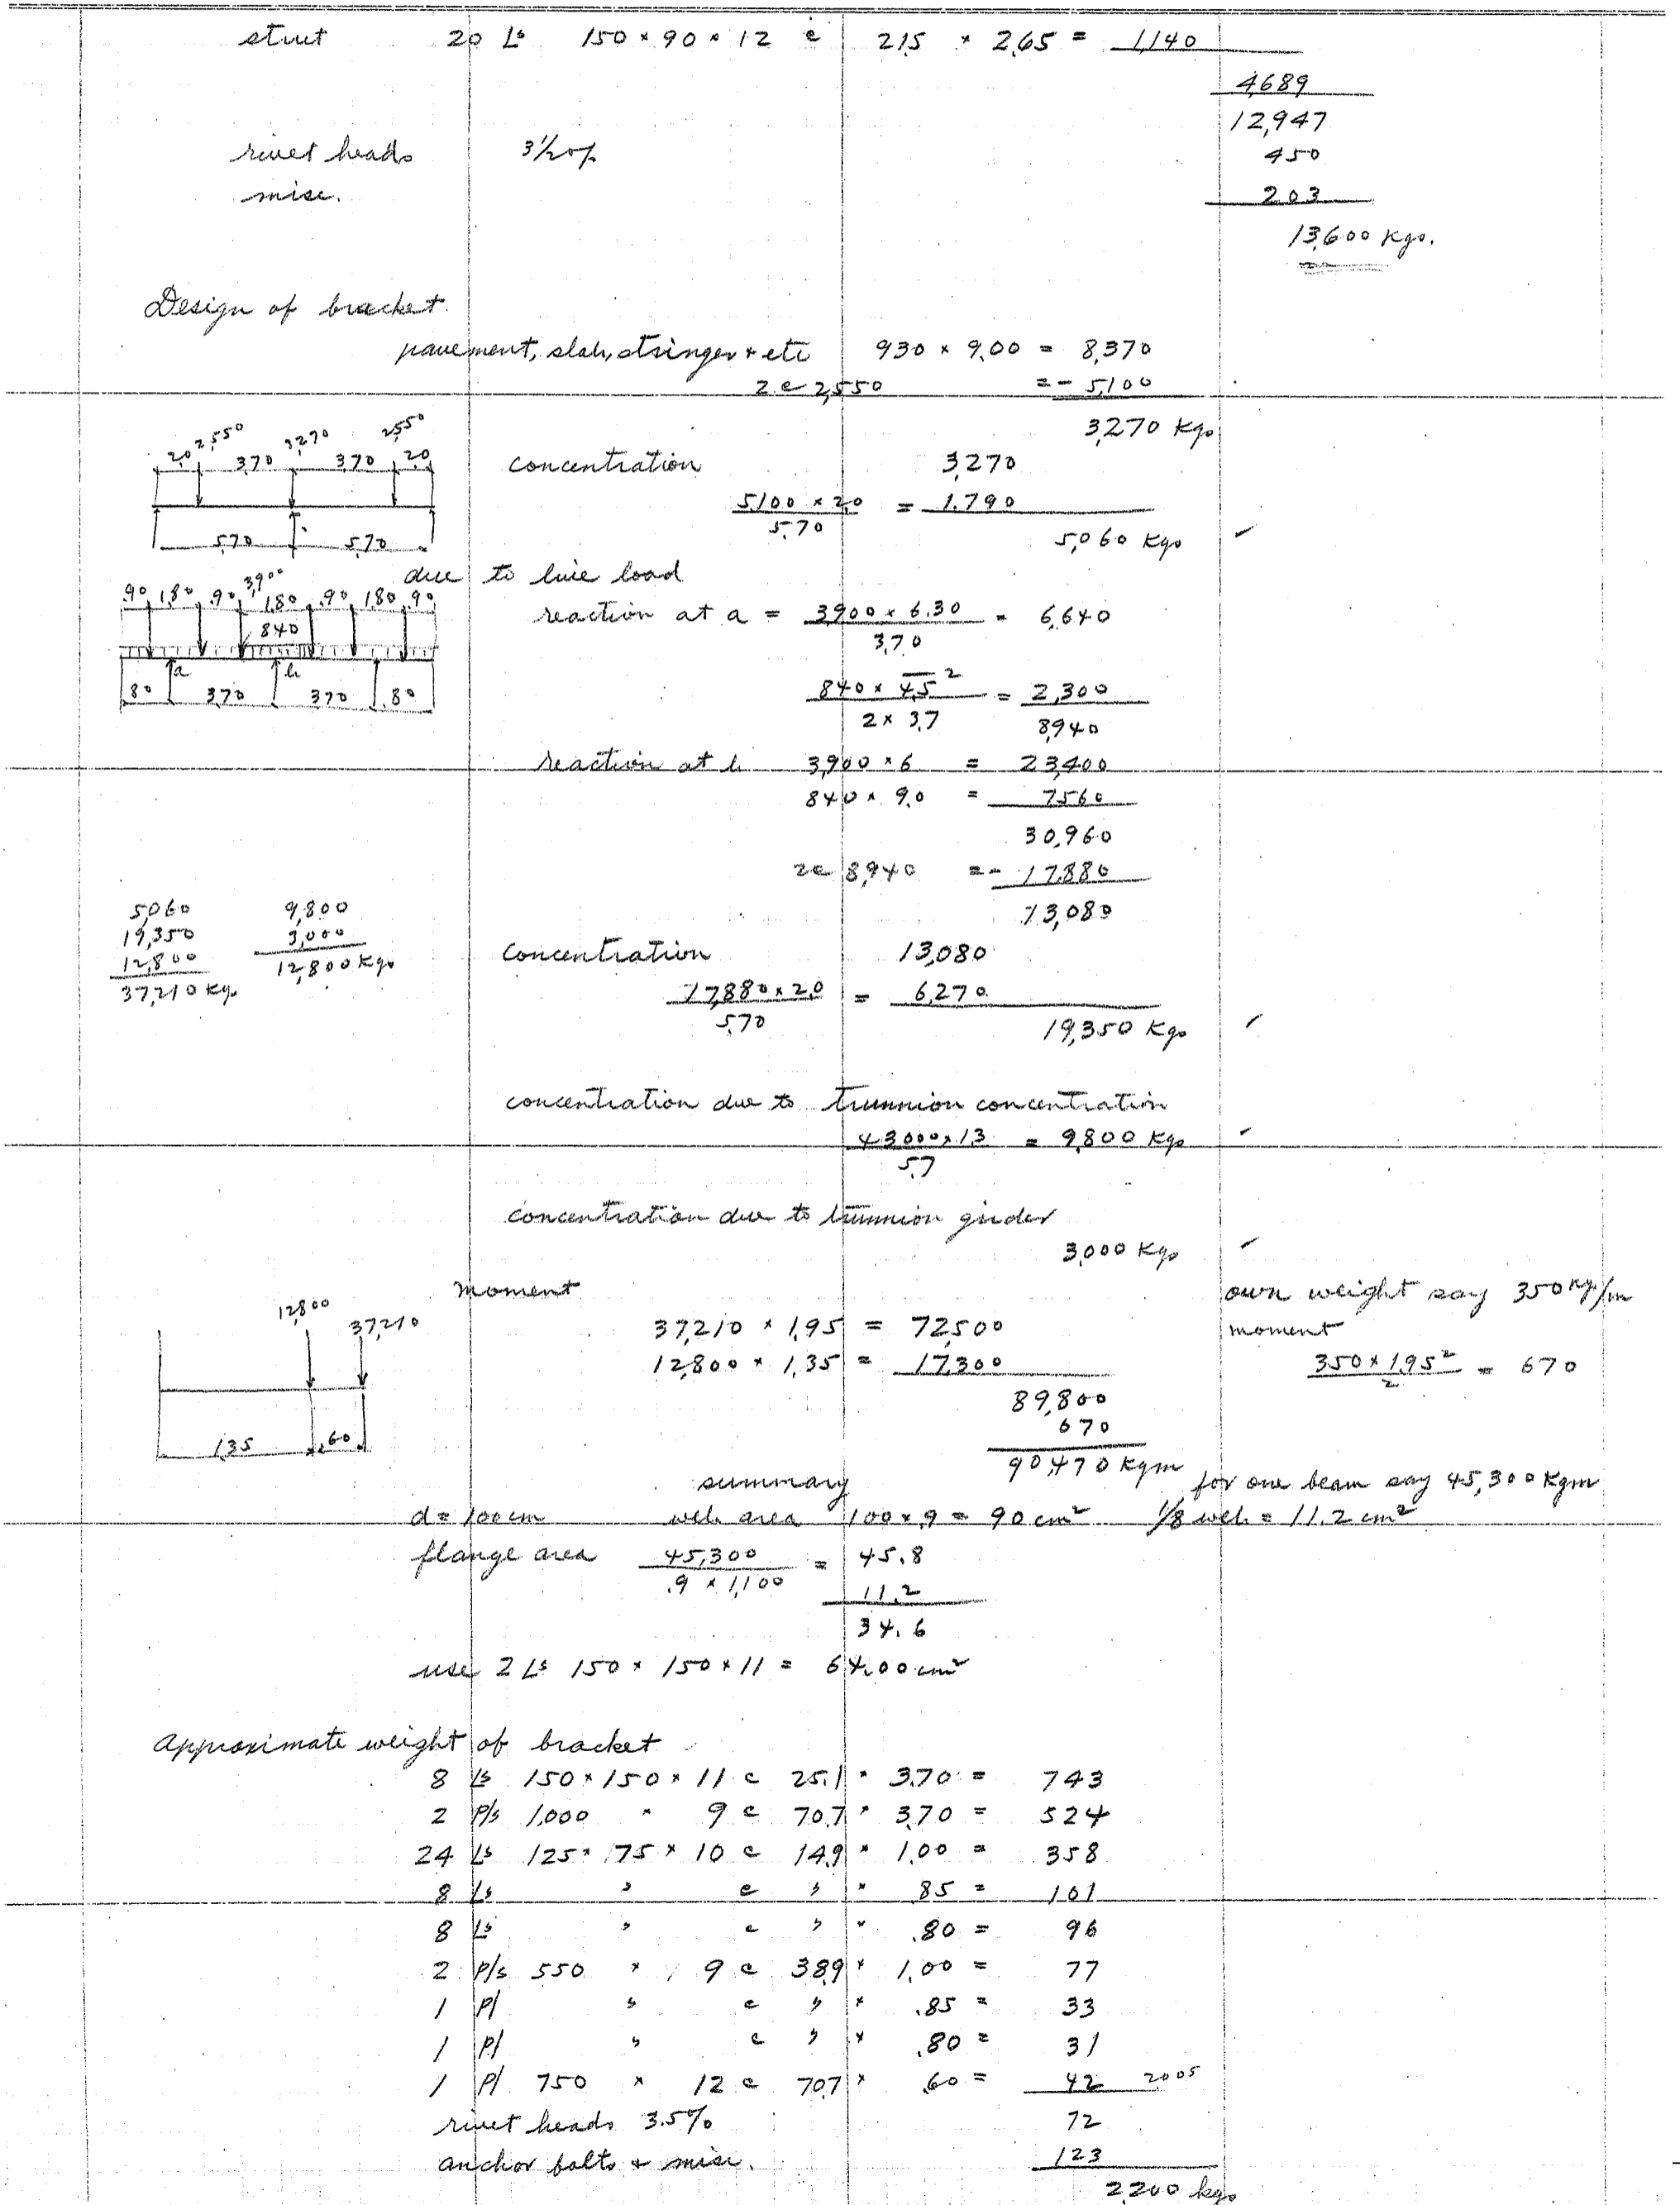 strut 20 Ls 150 × 90 × 12 @ 21.5 × 2.65 = 1,140
4,689
12,947
rivet heads 3½% 450
misc. 203
13,600 Kgs.
Design of bracket.
pavement, slab, stringer & etc 930 × 9.00 = 8,370
2 @ 2,550 = - 5,100
3,270 Kgs
2,550 3,270 2,550
2.0 3.70 3.70 2.0
5.70 5.70
concentration 3,270
5,100 × 2.0 / 5.70 = 1,790
5,060 Kgs
due to live load
3,900
.90 1.80 .90 1.80 .90 1.80 .90
840
a b
.80 3.70 3.70 .80
reaction at a = 3,900 × 6.30 / 3.70 = 6,640
840 × 4.5² / 2 × 3.7 = 2,300
8,940
reaction at b 3,900 × 6 = 23,400
840 × 9.0 = 7,560
30,960
2 @ 8,940 = - 17,880
13,080
5,060 9,800
19,350 3,000
12,800 12,800 Kgs
37,210 Kgs
concentration 13,080
17,880 × 2.0 / 5.70 = 6,270
19,350 Kgs
concentration due to trunnion concentration
43,000 × 1.3 / 5.7 = 9,800 Kgs
concentration due to trunnion girder
3,000 Kgs
12,800
37,210
1.35 .60
moment
37,210 × 1.95 = 72,500
12,800 × 1.35 = 17,300
89,800
670
90,470 Kgm
own weight say 350 Kg/m
moment
350 × 1.95² / 2 = 670
for one beam say 45,300 Kgm
summary
d = 100 cm web area 100 × .9 = 90 cm² 1/8 web = 11.2 cm²
flange area 45,300 / .9 × 1,100 = 45.8
11.2
34.6
use 2 Ls 150 × 150 × 11 = 64.00 cm²
Approximate weight of bracket
8 Ls 150 × 150 × 11 @ 25.1 × 3.70 = 743
2 Pls 1,000 × 9 @ 70.7 × 3.70 = 524
24 Ls 125 × 75 × 10 @ 14.9 × 1.00 = 358
8 Ls " @ " × .85 = 101
8 Ls " @ " × .80 = 96
2 Pls 550 × 9 @ 38.9 × 1.00 = 77
1 Pl " @ " × .85 = 33
1 Pl " @ " × .80 = 31
1 Pl 750 × 12 @ 70.7 × .60 = 42 2,005
rivet heads 3.5% 72
anchor bolts & misc. 123
2,200 kgs